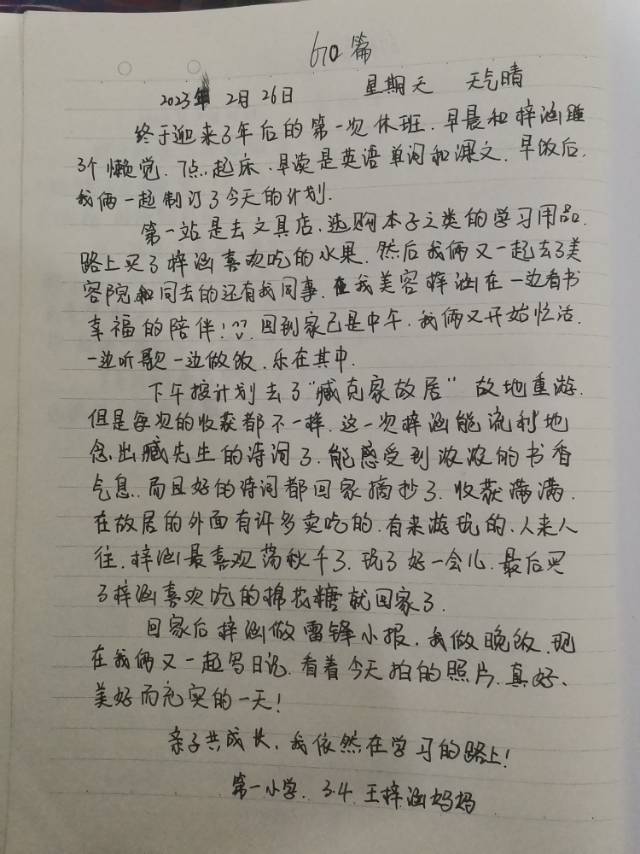 670篇
2023年2月26日 星期天 天气晴
终于迎来了年后的第一次休班.早晨和梓涵睡
了个懒觉.7点.起床.早读是英语单词和课文.早饭后.
我俩一起制订了今天的计划.
第一站是去文具店.选购本子之类的学习用品.
路上买了梓涵喜欢吃的水果.然后我俩又一起去了美
容院和同去的还有我同事.在我美容梓涵在一边看书
幸福的陪伴!回到家已是中午.我俩又开始忙活.
一边听歌一边做饭.乐在其中.
下午按计划去了“臧克家故居”故地重游.
但是每次的收获都不一样.这一次梓涵能流利地
念出臧先生的诗词了.能感受到浓浓的书香
气息.而且好的诗词都回家摘抄了.收获满满.
在故居的外面有许多卖吃的.有来游玩的.人来人
往.梓涵最喜欢荡秋千了.玩了好一会儿.最后买
了梓涵喜欢吃的棉花糖就回家了.
回家后梓涵做雷锋小报.我做晚饭.现
在我俩又一起写日记.看着今天拍的照片.真好、
美好而充实的一天!
亲子共成长.我依然在学习的路上!
第一小学.3.4.王梓涵妈妈